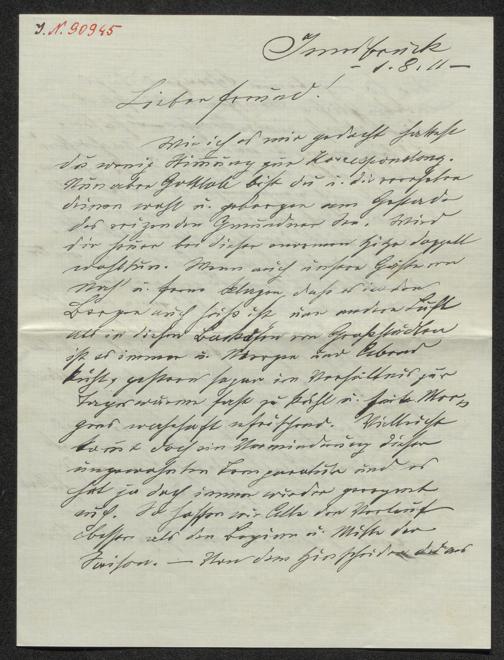 I. N. 90945
Innsbruck
1.8.11
Lieber Freund!
Wie ich es mir gedacht hattest
du wenig Stimmung zur Correspondenz.
Nun aber Gottlob bist du u. die verehrten
deinen wohl u. geborgen am Gestade
des reizenden Gmundner Sees. Wird
dir heuer bei dieser enormen Hitze doppelt
wohltun. Wenn auch unsere Gäste von
Nah u. Fern klagen, dass es in den
Bergen auch heiß ist, eine andere Luft
als in diesen Backöfen von Großstädten
ist es immer u. Morgen und Abend
kühl, gestern sogar im Verhältnis zur
Tageswärme fast zu kühl u. heute Mor-
gens wahrhaft erfrischend. Vielleicht
kommt doch ein Verminderung dieser
ungewohnten Temperatur und es
hat ja doch immer wieder geregnet
auf. So hoffen wir Alle den Verlauf
besser als den Beginn u. Mitte der
Saison. — Von dem Hinscheiden